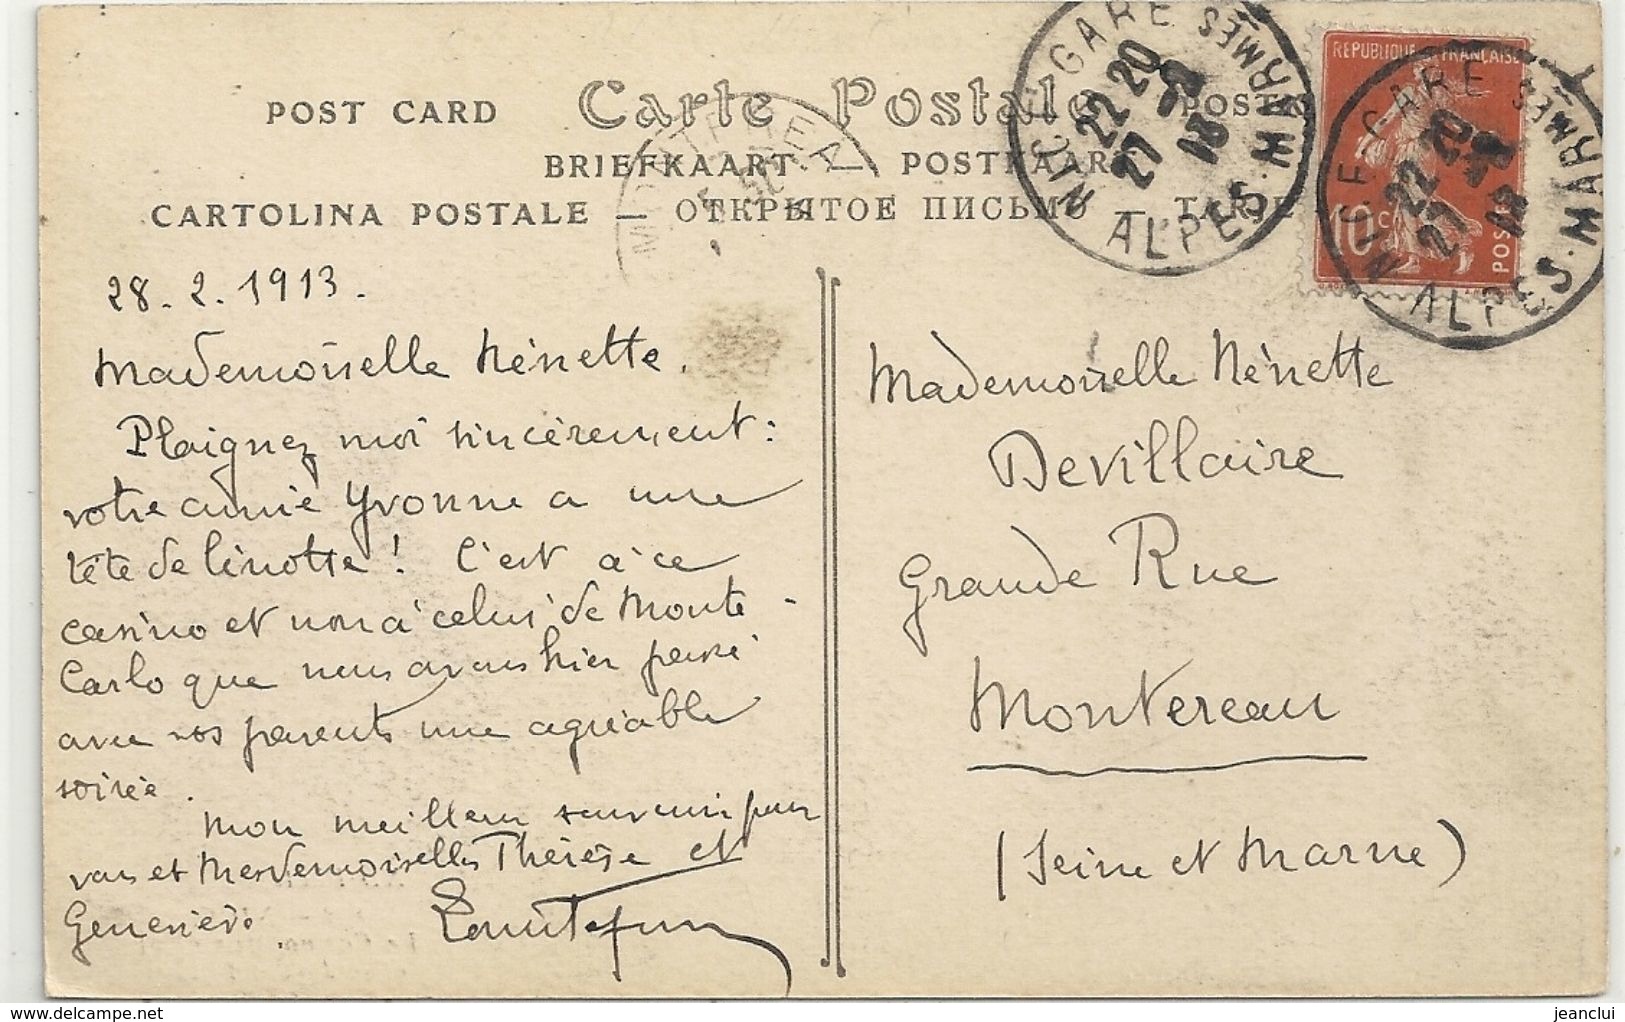 POST CARD
Carte Postale
POST
BRIEFKAART — POSTKAART
CARTOLINA POSTALE — ОТКРЫТОЕ ПИСЬМО — TARJE
NICE GARE
22 20
27 -2
13
ALPES-MARMES
REPUBLIQUE FRANÇAISE
10c
POSTES
NICE GARE
22 20
27 -2
13
ALPES-MARMES
MONTEREAU
28.2.1913.
Mademoiselle Nénette.
Plaignez moi sincèrement:
votre amie Yvonne a une
tête de linotte! C'est à ce
casino et non à celui de Monte-
Carlo que nous avons hier passé
avec vos parents une agréable
soirée.
Mon meilleur souvenir pour
vous et Mesdemoiselles Thérèse et
Geneviève.
Mademoiselle Nénette
Devillaire
Grande Rue
Montereau
(Seine et Marne)
delcampe.net
jeanclui